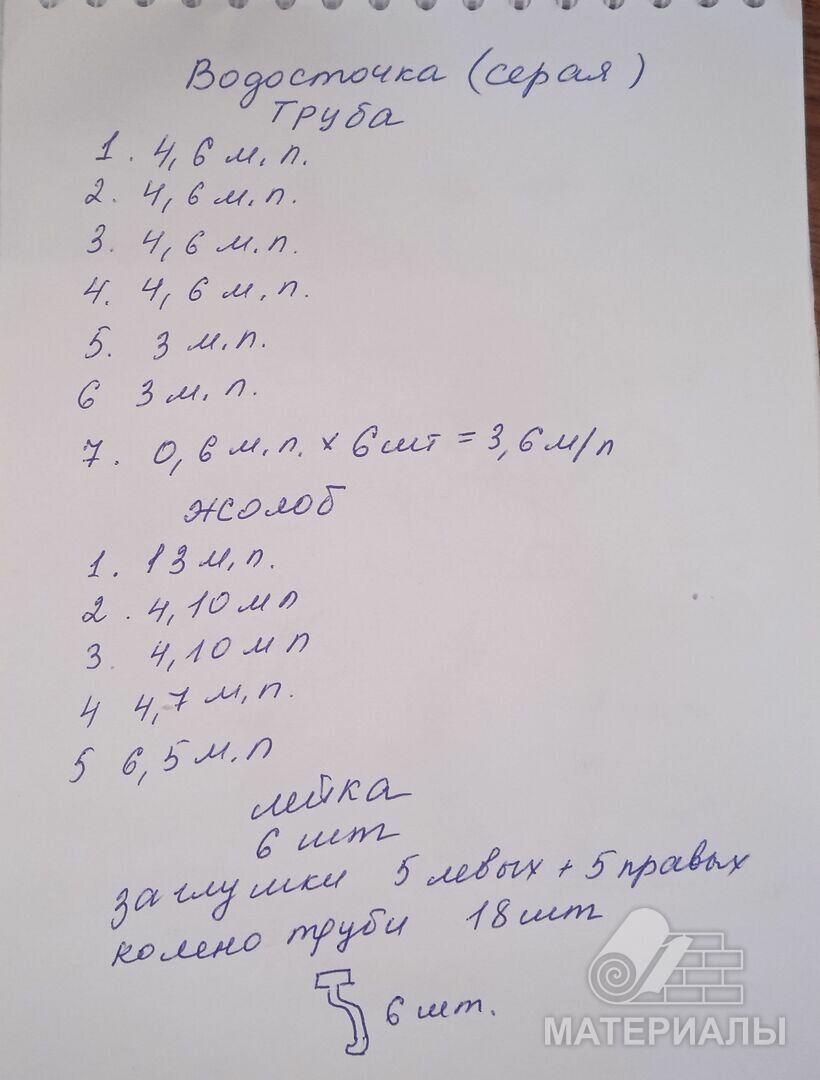 Водосточка (серая)
Труба
1. 4,6 м.п.
2. 4,6 м.п.
3. 4,6 м.п.
4. 4,6 м.п.
5. 3 м.п.
6 3 м.п.
7. 0,6 м.п. х 6 шт = 3,6 м/п
жолоб
1. 13 м.п.
2. 4,10 мп
3. 4,10 м п
4 4,7 м.п.
5 6,5 м.п
лейка
6 шт
заглушки 5 левых + 5 правых
колено труби 18 шт
6 шт.
МАТЕРИАЛЫ